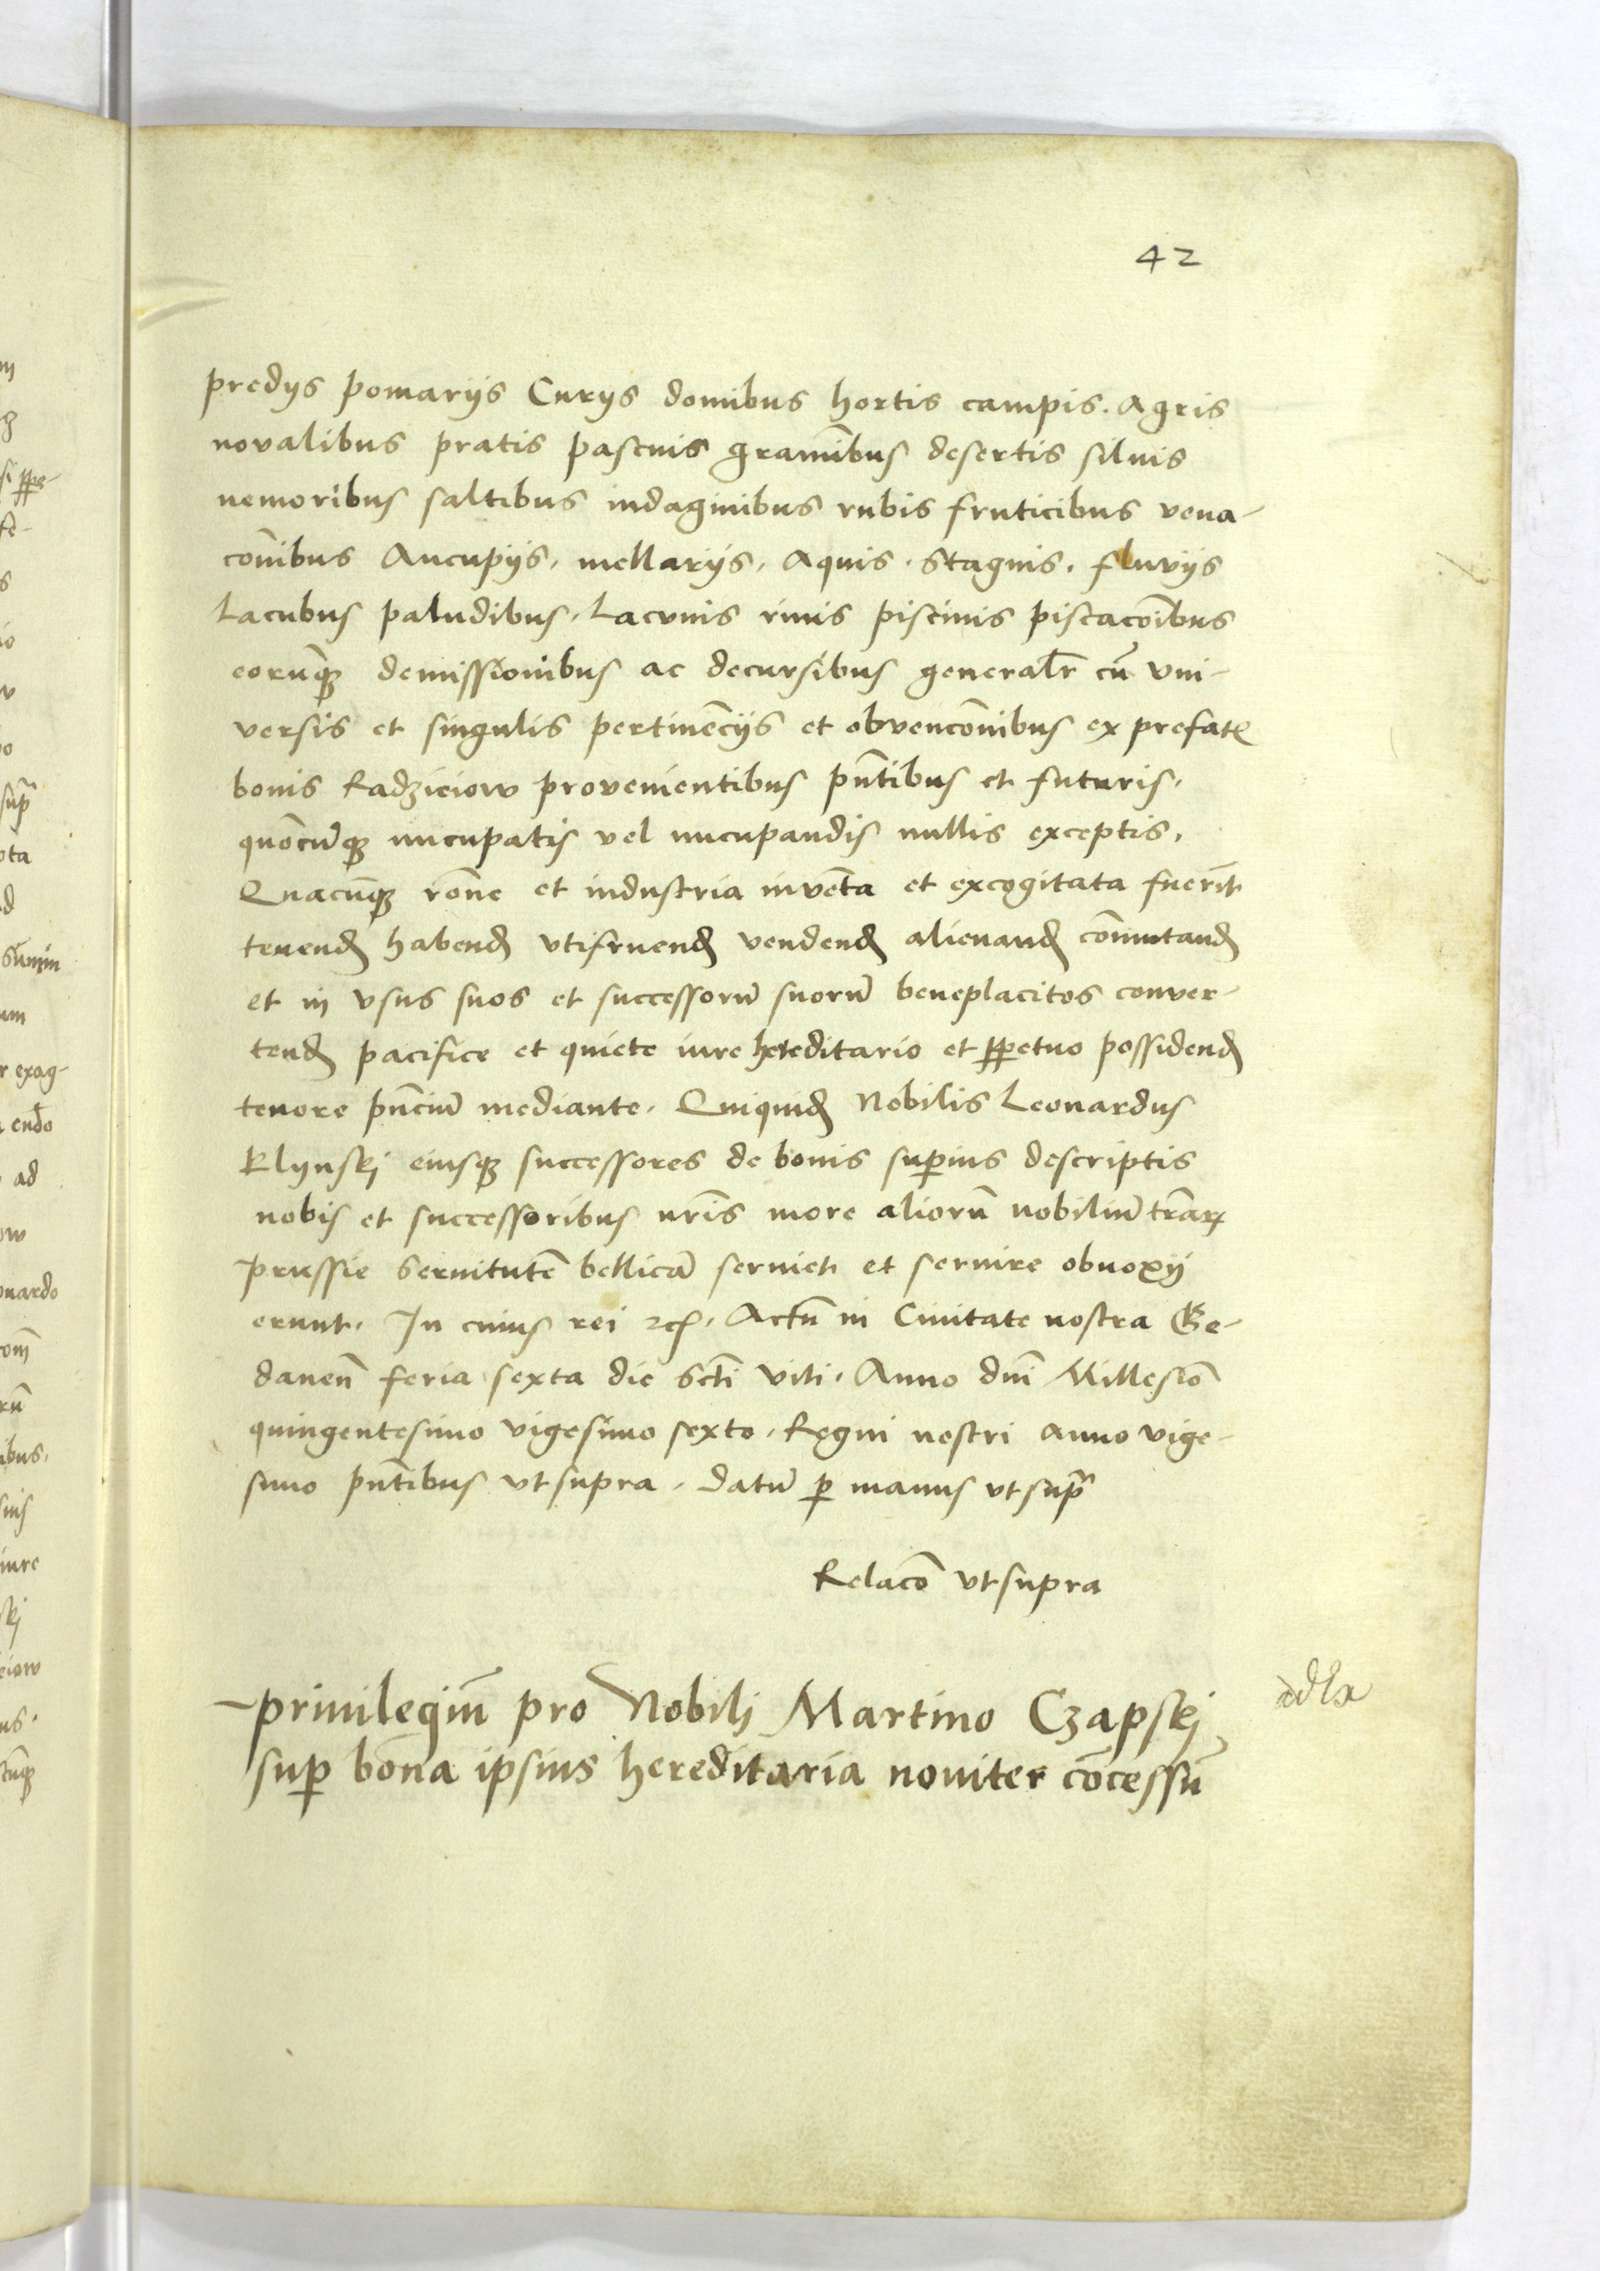 42
predijs pomarijs Curijs domibus hortis campis. Agris
novalibus pratis pascuis gramībus desertis siluis
nemoribus saltibus indaginibus rubis fruticibus vena-
cōnibus Aucupijs. mellarijs. Aquis. Stagnis. fluvijs
Lacubus paludibus. Lacunis riuis piscinis piscacōībus
eorūqꝫ demissionibus ac decursibus generalr̄ cū vni-
versis et singulis pertinēcijs et obvencōnibus ex prefatꝭ
bonis Radzieiow provenientibus pn̄tibus et futuris.
quōcūqꝫ nūcupatis vel nūcupandis nullis exceptis.
Quacūqꝫ rōne et industria invēta et excogitata fuerīt
tenendꝭ habendꝭ vtifruendꝭ vendendꝭ alienandꝭ cōmutandꝭ
et in vsus suos et successorū suorū beneplacitos conver-
tendꝭ pacifice et quiete iure hereditario et ꝑpetuo possidendꝭ
tenore pn̄ciū mediante. Quiquidꝭ Nobilis Leonardus
Klynskj eiusqꝫ successores de bonis suꝑius descriptis
nobis et successoribus nr̄is more aliorū nobiliū trārꝝ
Prussie seruitutē bellicā seruiet et seruire obnoxij
erunt. In cuius rei ꝛcꝭ. Actū in Ciuitate nostra Ge-
danēn̄ feria sexta die Sctī viti. Anno dnī Millesiō
quingentesimo vigesimo sexto. Regni nostri anno vige-
simo pn̄tibus vt supra. Datū ꝑ manus vt supᷓ
Relacō vt supra
Priuilegiū pro Nobilj Martino Czapskj
suꝑ bona ipsius hereditaria noviter cōcessū